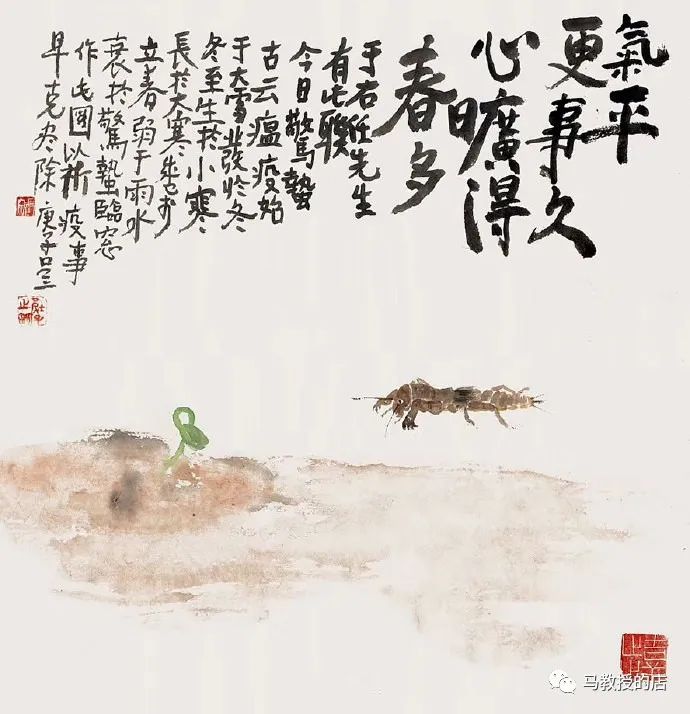 氣平
更事久
心曠得
春多
于右任先生
有此聯
今日驚蟄
古云瘟疫始
于大雪發於冬
冬至生於小寒
長於大寒盛於
立春弱于雨水
衰於驚蟄臨窓
作此圖以祈疫事
早克盡除庚子
马教授的店